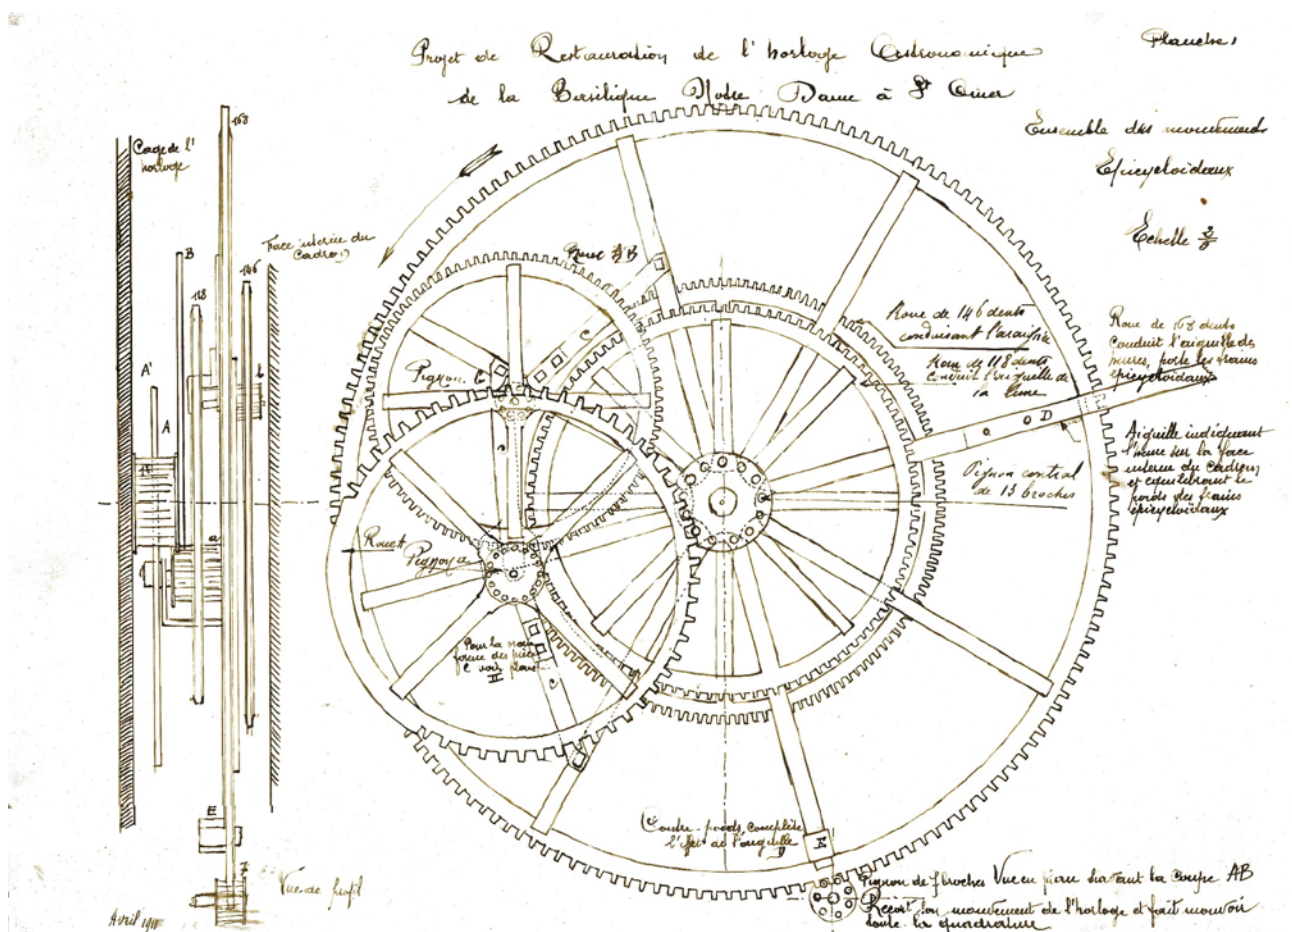 Projet de Restauration de l'horloge Astronomique
de la Basilique Notre Dame à St Omer
Planche 1
Ensemble des mouvements
Epicycloïdaux
Echelle
Cage de l'
horloge
168
Face interne du
Cadran
B
146
118
A'
A
b
a
E
7
Vue de profil
Avril 1911
Roue B
C
Pignon
C
Roue A
Pignon a
Pour la
forme des
C voir
II
C
Roue de 146 dents
conduisant l'araignée
Roue de 118 dents
conduit l'aiguille de
la lune
Pignon central
de 13 broches
D
Roue de 168 dents
conduit l'aiguille des
heures, porte les trains
épicycloïdaux
Aiguille indiquant
l'heure sur la face
interne du Cadran
et équilibrant le
poids des trains
épicycloïdaux
Contre-poids, complète
l'effet de l'aiguille
D
Pignon de 7 broches Vue en plan suivant la coupe AB
Reçoit son mouvement de l'horloge et fait mouvoir
toute la quadrature